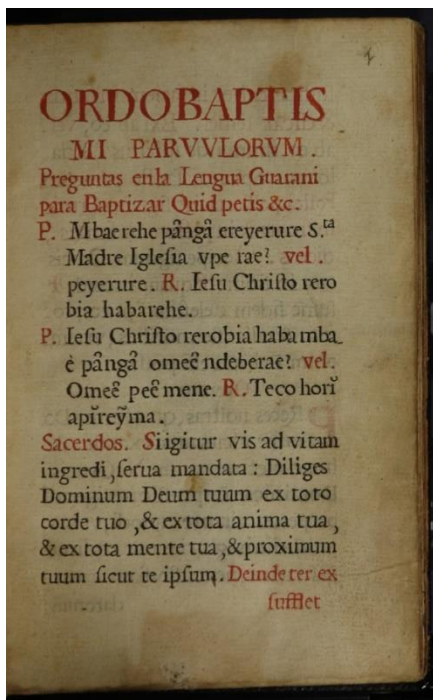 1
ORDOBAPTIS
MI PARVVLORVM.
Preguntas enla Lengua Guarani
para Baptizar Quid petis &c.
P. Mbaerehe pângâ ereyerure S.ta
Madre Iglesia vpe rae? vel.
peyerure. R. Iesu Christo rero
bia habarehe.
P. Iesu Christo rerobiahaba mba
è pângâ omeẽ ndeberae? vel.
Omeẽ peẽ mene. R. Teco horĩ
apĩreỹma.
Sacerdos. Siigitur vis ad vitam
ingredi, serua mandata: Diliges
Dominum Deum tuum ex toto
corde tuo, & ex tota anima tua,
& ex tota mente tua, & proximum
tuum sicut te ipsum. Deinde ter ex
sufflet